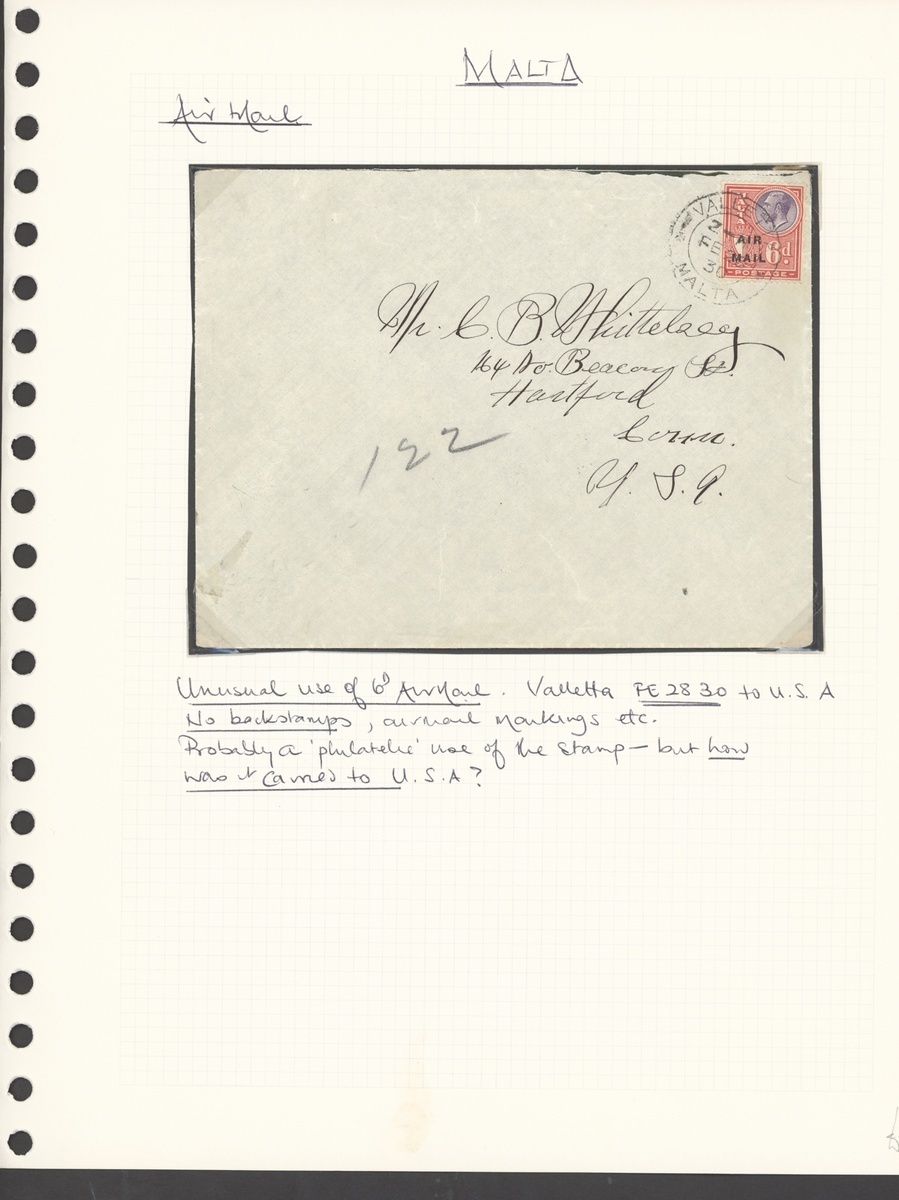 MALTA
Air Mail
VALLETTA
FE
30
MALTA
AIR
MAIL
6d
POSTAGE
Mr. C. B. Whittelsey
164 No. Beacon St.
Hartford
Conn.
U. S. A.
122
Unusual use of 6d AirMail. Valletta FE 28 30 to U.S.A
No backstamps, airmail markings etc.
Probably a 'philatelic' use of the stamp – but how
was it carried to U.S.A?